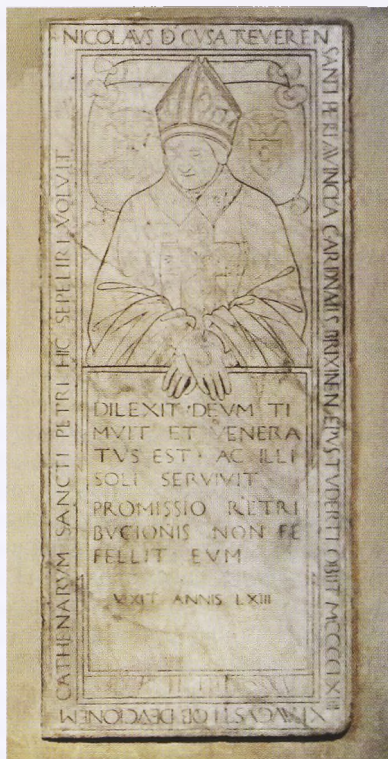 NICOLAVS D CVSA TREVEREN
SANTI PETRI CARDINALIS BRIXINEN EPVS TVDERTI OBIIT
XI AVGVSTI OB DEVCIONEM
CATHENARVM SANCTI PETRI HIC SEPELIRI VOLVIT
DILEXIT · DEVM TI
MVIT ET VENERA
TVS EST · AC ILLI
SOLI SERVIVIT
PROMISSIO RETRI
BVCIONIS NON FE
FELLIT EVM
VIXIT ANNIS LXIII